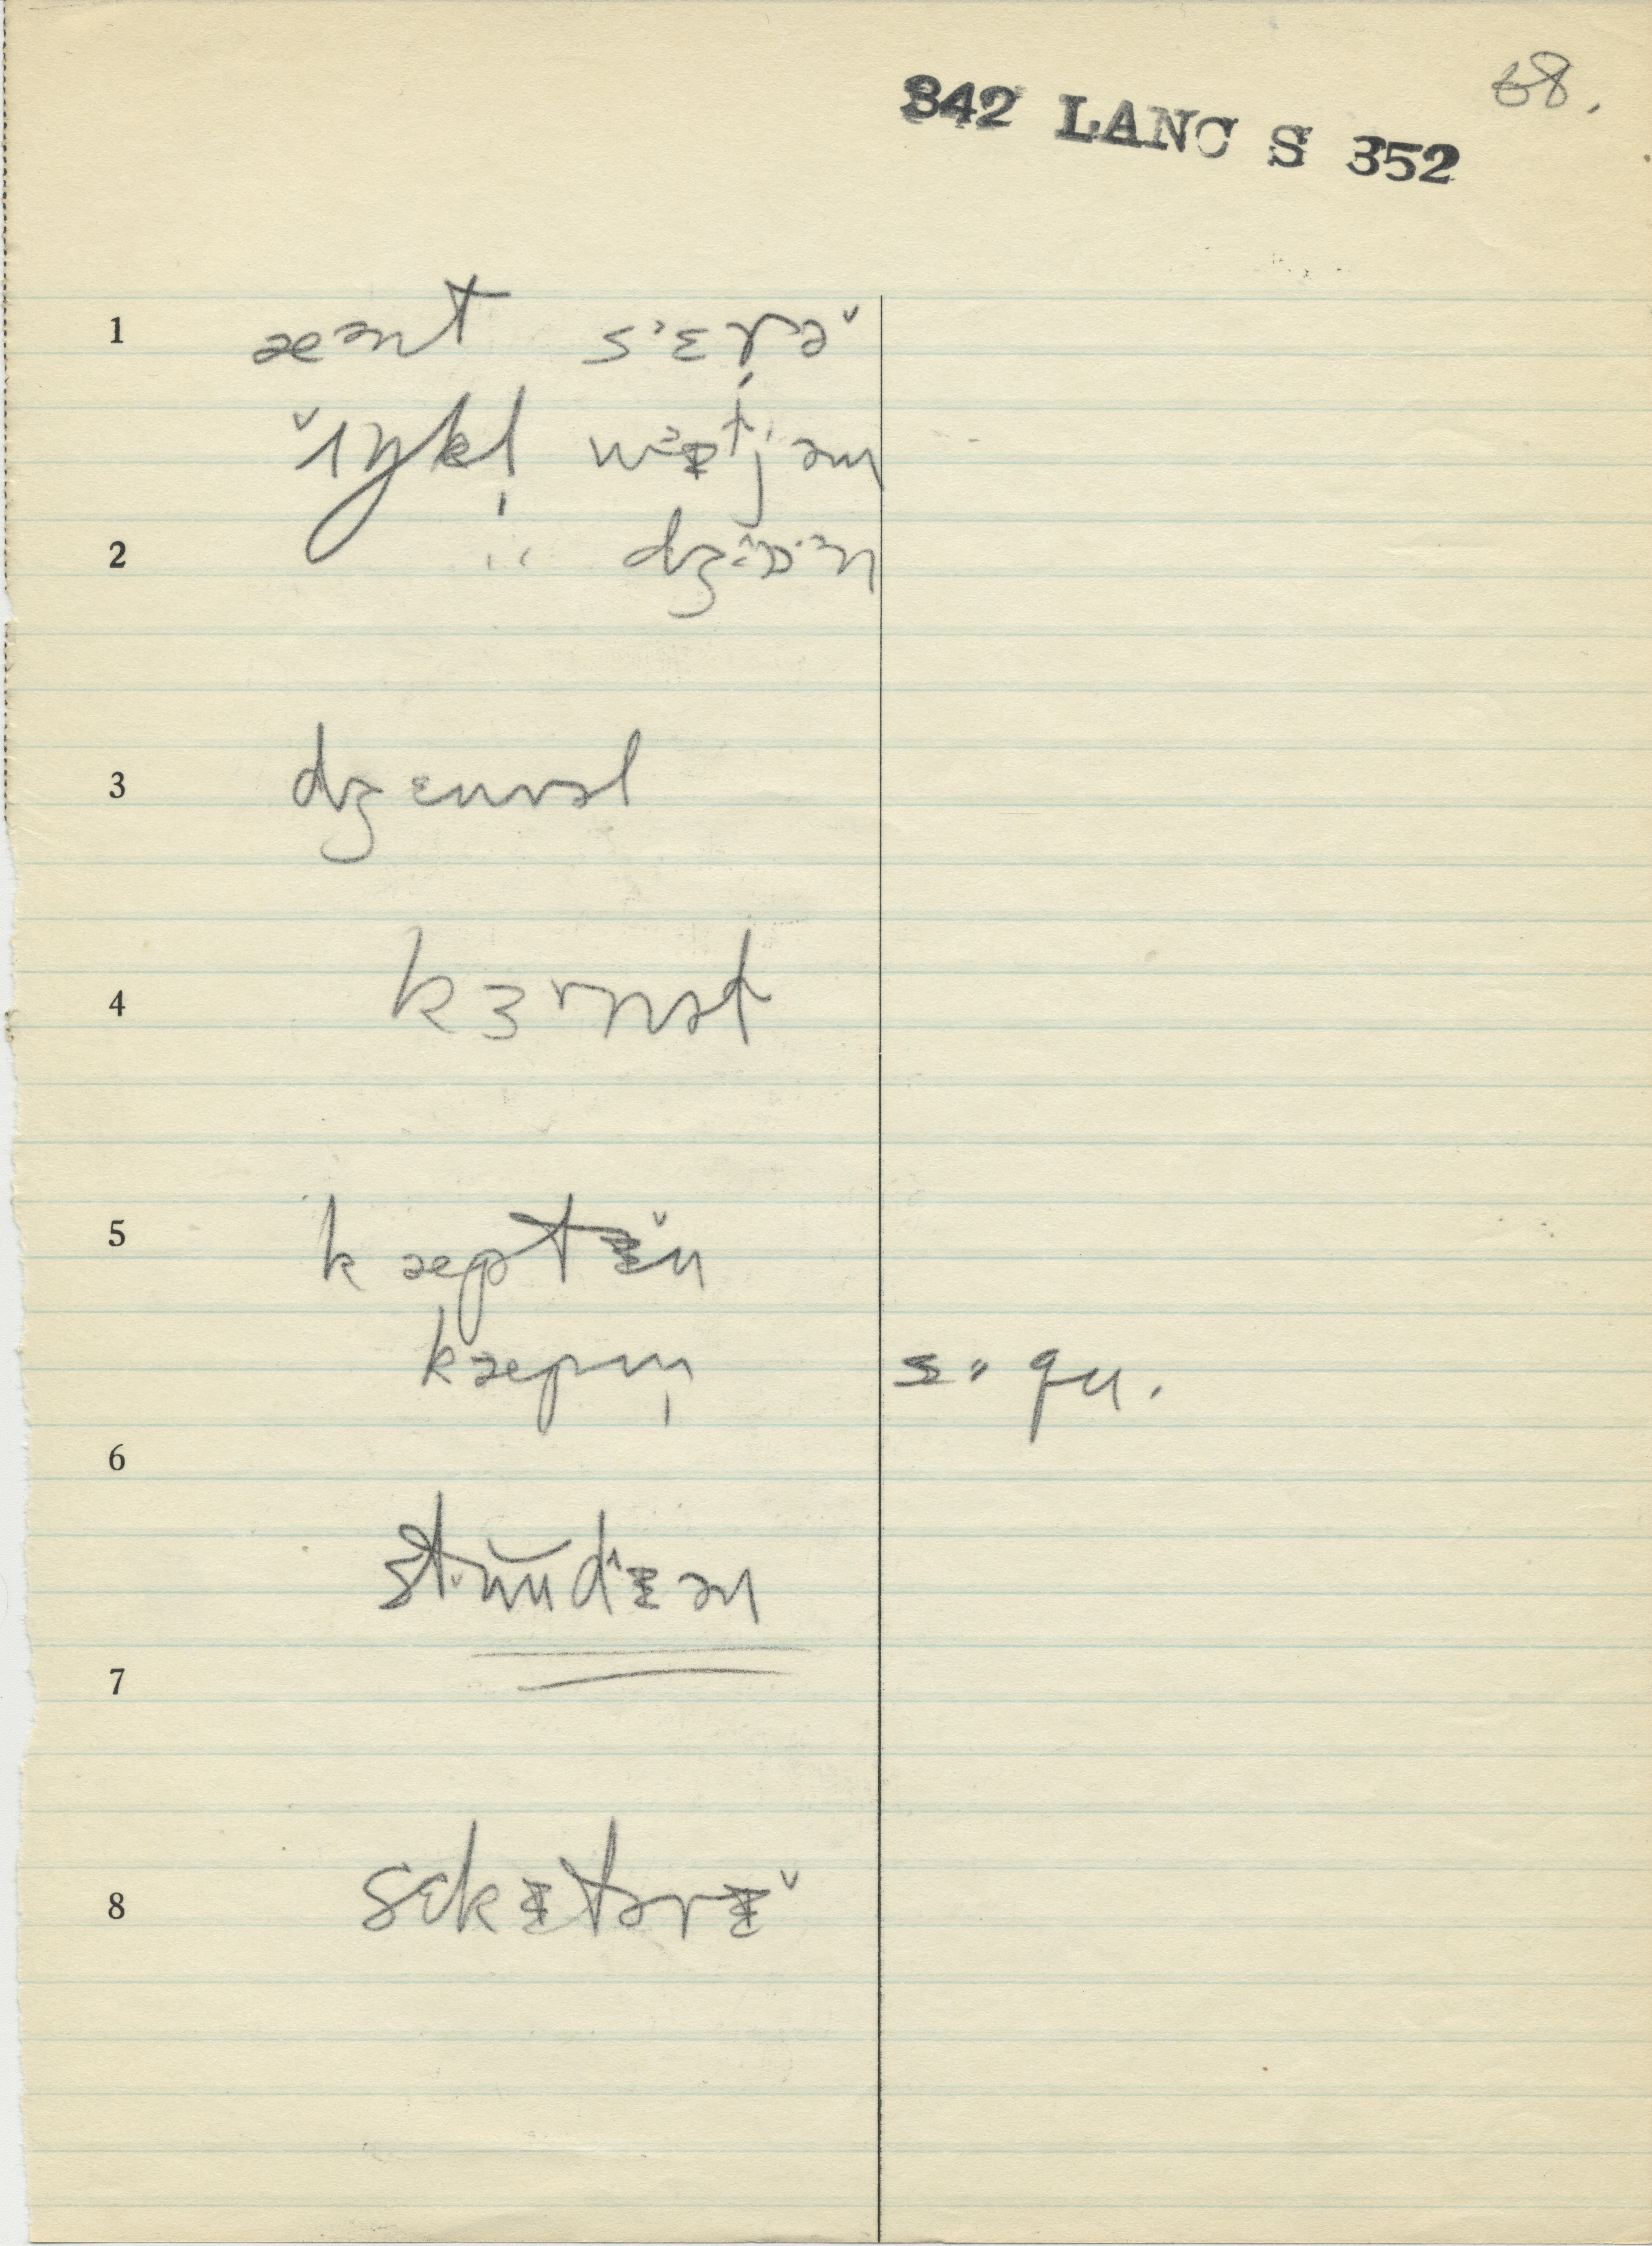 68.
342 LANC S 352
1 æənt sˈɛrə̌
ˇɪŋkl̩ wɪtjəm
2 " dʒɒn
3 dʒɛnrəl
4 kɜrnət
5 kæptɪ̌n
kæpm̩ s. qu.
6
stʉudɪən
7
8 sɛkɪtərɪ̌